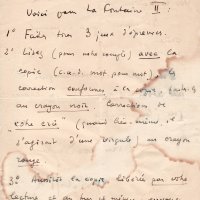 Voici pour La Fontaine II :
1° Faites tirer 3 jeux d'épreuves.
2° Lisez (pour votre compte) avec la
copie (c.a.d. mot pour mot) : la
correction conforme à la copie,
au crayon noir, corrections de
"votre crû" (quand bien même il
s'agirait d'une virgule) au crayon
rouge
3° Aussitôt la copie libérée par votre
lecture et en